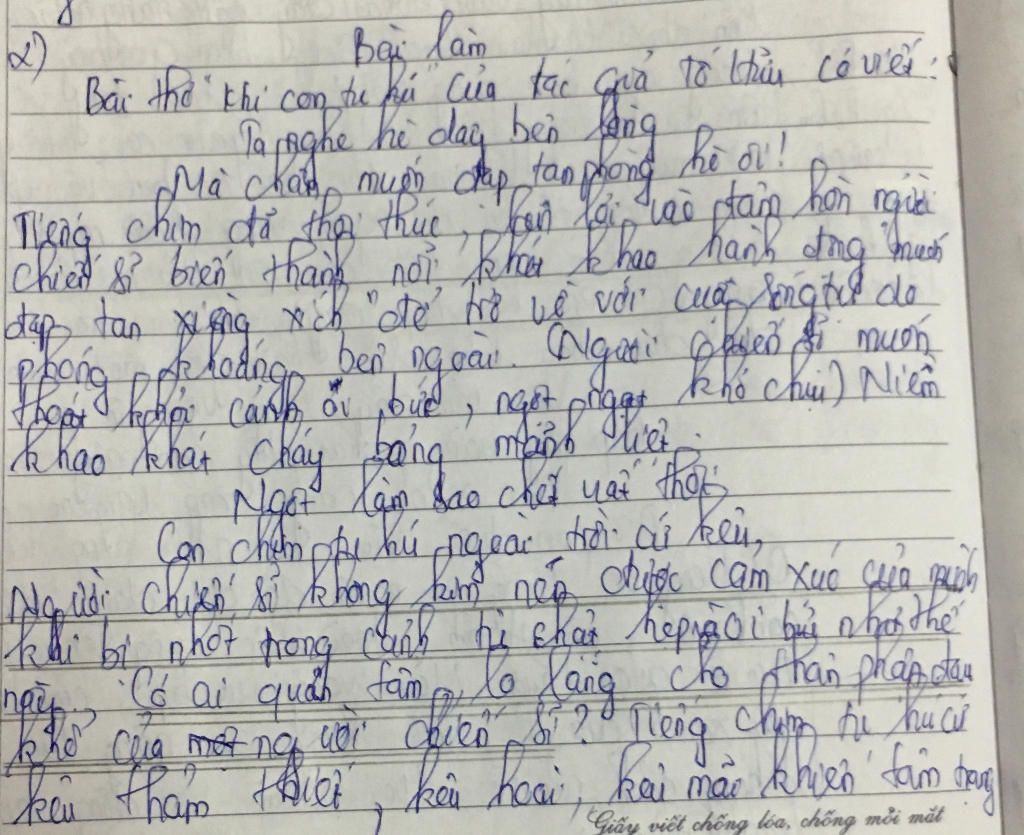 2) Bài làm
Bài thơ "Khi con tu hú" của tác giả Tố Hữu có viết:
Ta nghe hè dậy bên lòng
Mà chân muốn đạp tan phòng hè ôi!
Tiếng chim đã thôi thúc, lay vào tâm hồn người
chiến sĩ biến thành nỗi khát khao hành động muốn
đạp tan xiềng xích "để trở về với cuộc sống tự do
phóng khoáng bên ngoài. (Người chiến sĩ muốn
thoát khỏi cảnh oi bức, ngột ngạt khó chịu) Niềm
khao khát cháy bỏng mãnh liệt.
Ngột làm sao chết uất thôi
Con chim tu hú ngoài trời cứ kêu,
Người chiến sĩ không kìm nén được cảm xúc của mình
khi bị nhốt trong cảnh tù chật hẹp oi bức như thế
này. Có ai quan tâm, lo lắng cho thân phận đau
khổ của một người chiến sĩ? Tiếng chim tu hú cứ
kêu thảm thiết, kêu hoài, kêu mãi khiến tâm trạng
Giấy viết chống lóa, chống mỏi mắt